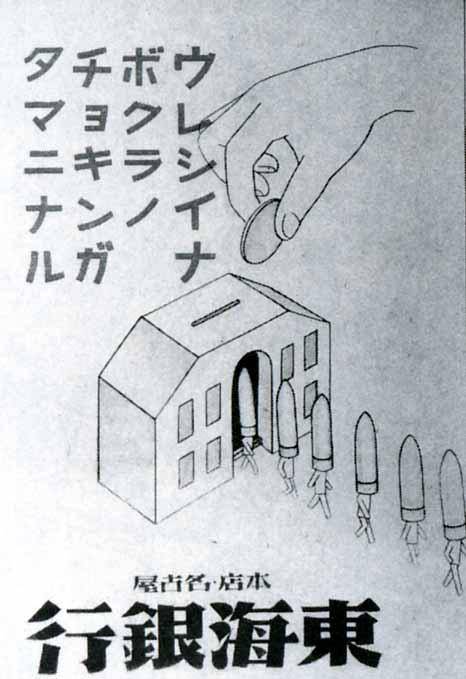 ウレシイナ
ボクラノ
チョキンガ
タマニナル
本店・名古屋
東海銀行